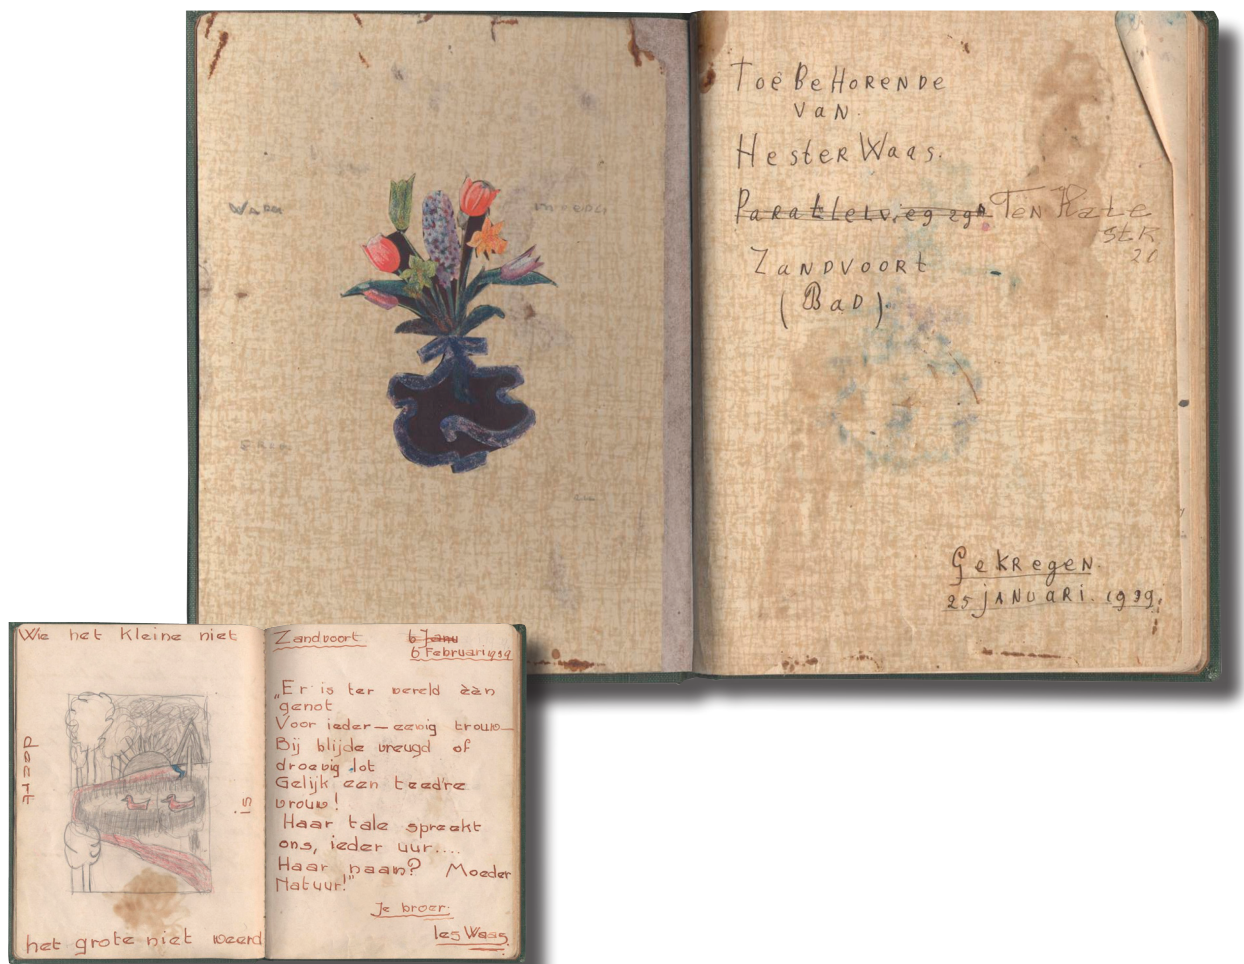 Toe BeHorende
van
Hester Waas.
Parallelweg 2g^A Ten Kate
StR
20
Zandvoort
(Bad).
Gekregen.
25 januari. 1939.
Wie het kleine niet
eert
is
het grote niet weerd
Zandvoort 6 Janu
6 Februari 1939
„Er is ter wereld èàn
genot
Voor ieder — eewig trouw —
Bij blijde vreugd of
droevig lot
Gelijk een teed're
vrouw!
Haar tale spreekt
ons, ieder uur....
Haar naam? Moeder
Natuur!"
Je broer.
les Waas.